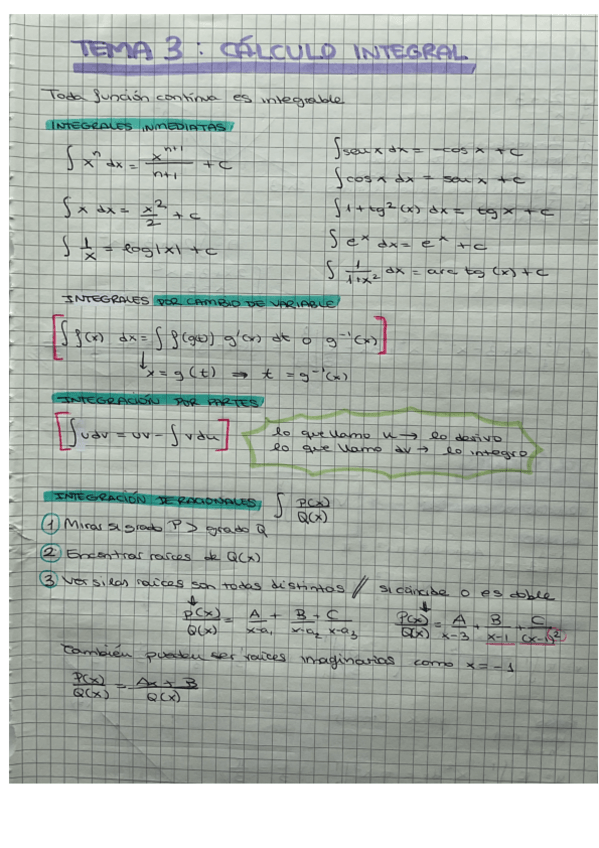 TEMA 3: CÁLCULO INTEGRAL
Toda función continua es integrable
INTEGRALES INMEDIATAS
∫ xⁿ dx = xⁿ⁺¹/n+1 + C
∫ x dx = x²/2 + C
∫ 1/x = log|x| + C
∫ sen x dx = -cos x + C
∫ cos x dx = sen x + C
∫ 1+tg²(x) dx = tg x + C
∫ eˣ dx = eˣ + C
∫ 1/1+x² dx = arc tg (x) + C
INTEGRALES POR CAMBIO DE VARIABLE
[∫ f(x) dx = ∫ f(g(t)) g'(x) dt o g⁻¹(x)]
↓ x = g(t) ⇒ t = g⁻¹(x)
INTEGRACIÓN POR PARTES
[∫ u dv = uv - ∫ v du]
lo que llamo u → lo derivo
lo que llamo dv → lo integro
INTEGRACIÓN DE RACIONALES ∫ P(x)/Q(x)
① Miras si grado P > grado Q
② Encontrar raíces de Q(x)
③ Ver si las raíces son todas distintas // si coincide o es doble
↓ ↓
P(x)/Q(x) = A/x-a₁ + B/x-a₂ + C/x-a₃ P(x)/Q(x) = A/x-3 + B/x-1 + C/(x-1)²
También pueden ser raíces imaginarias como x = -1
P(x)/Q(x) = Ax + B/Q(x)